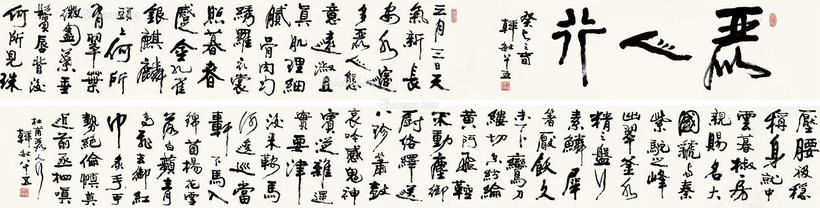 麗人行
癸巳之春
三月三日天
氣新長
安水邊
多麗人態濃
意遠淑且
真肌理細
膩骨肉勻
繡羅衣裳
照暮春
蹙金孔雀
銀麒麟
頭上何所
有翠葉
微㔩葉垂
鬢唇背後
何所見珠
壓腰衱穩
稱身就中
雲幕椒房
親賜名大
國虢與秦
紫駝之峰
出翠釜水
精之盤行
素鱗犀
箸厭飫久
未下鸞刀
縷切空紛綸
黃門飛鞚
不動塵御
廚絡繹送
八珍簫鼓
哀吟感鬼神
賓從雜遝
實要津
後來鞍馬
何逡巡當
軒下馬入
錦茵楊花雪
落覆白蘋青
鳥飛去銜紅
巾炙手可熱
勢絕倫慎莫
近前丞相嗔
杜甫麗人行